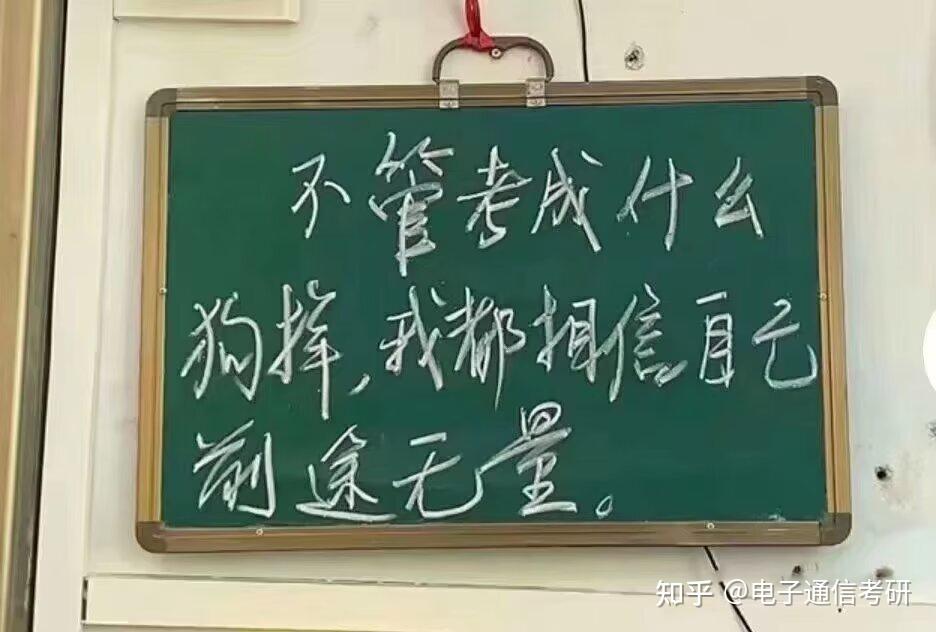 不管考成什么
狗样,我都相信自己
前途无量。
知乎 @电子通信考研